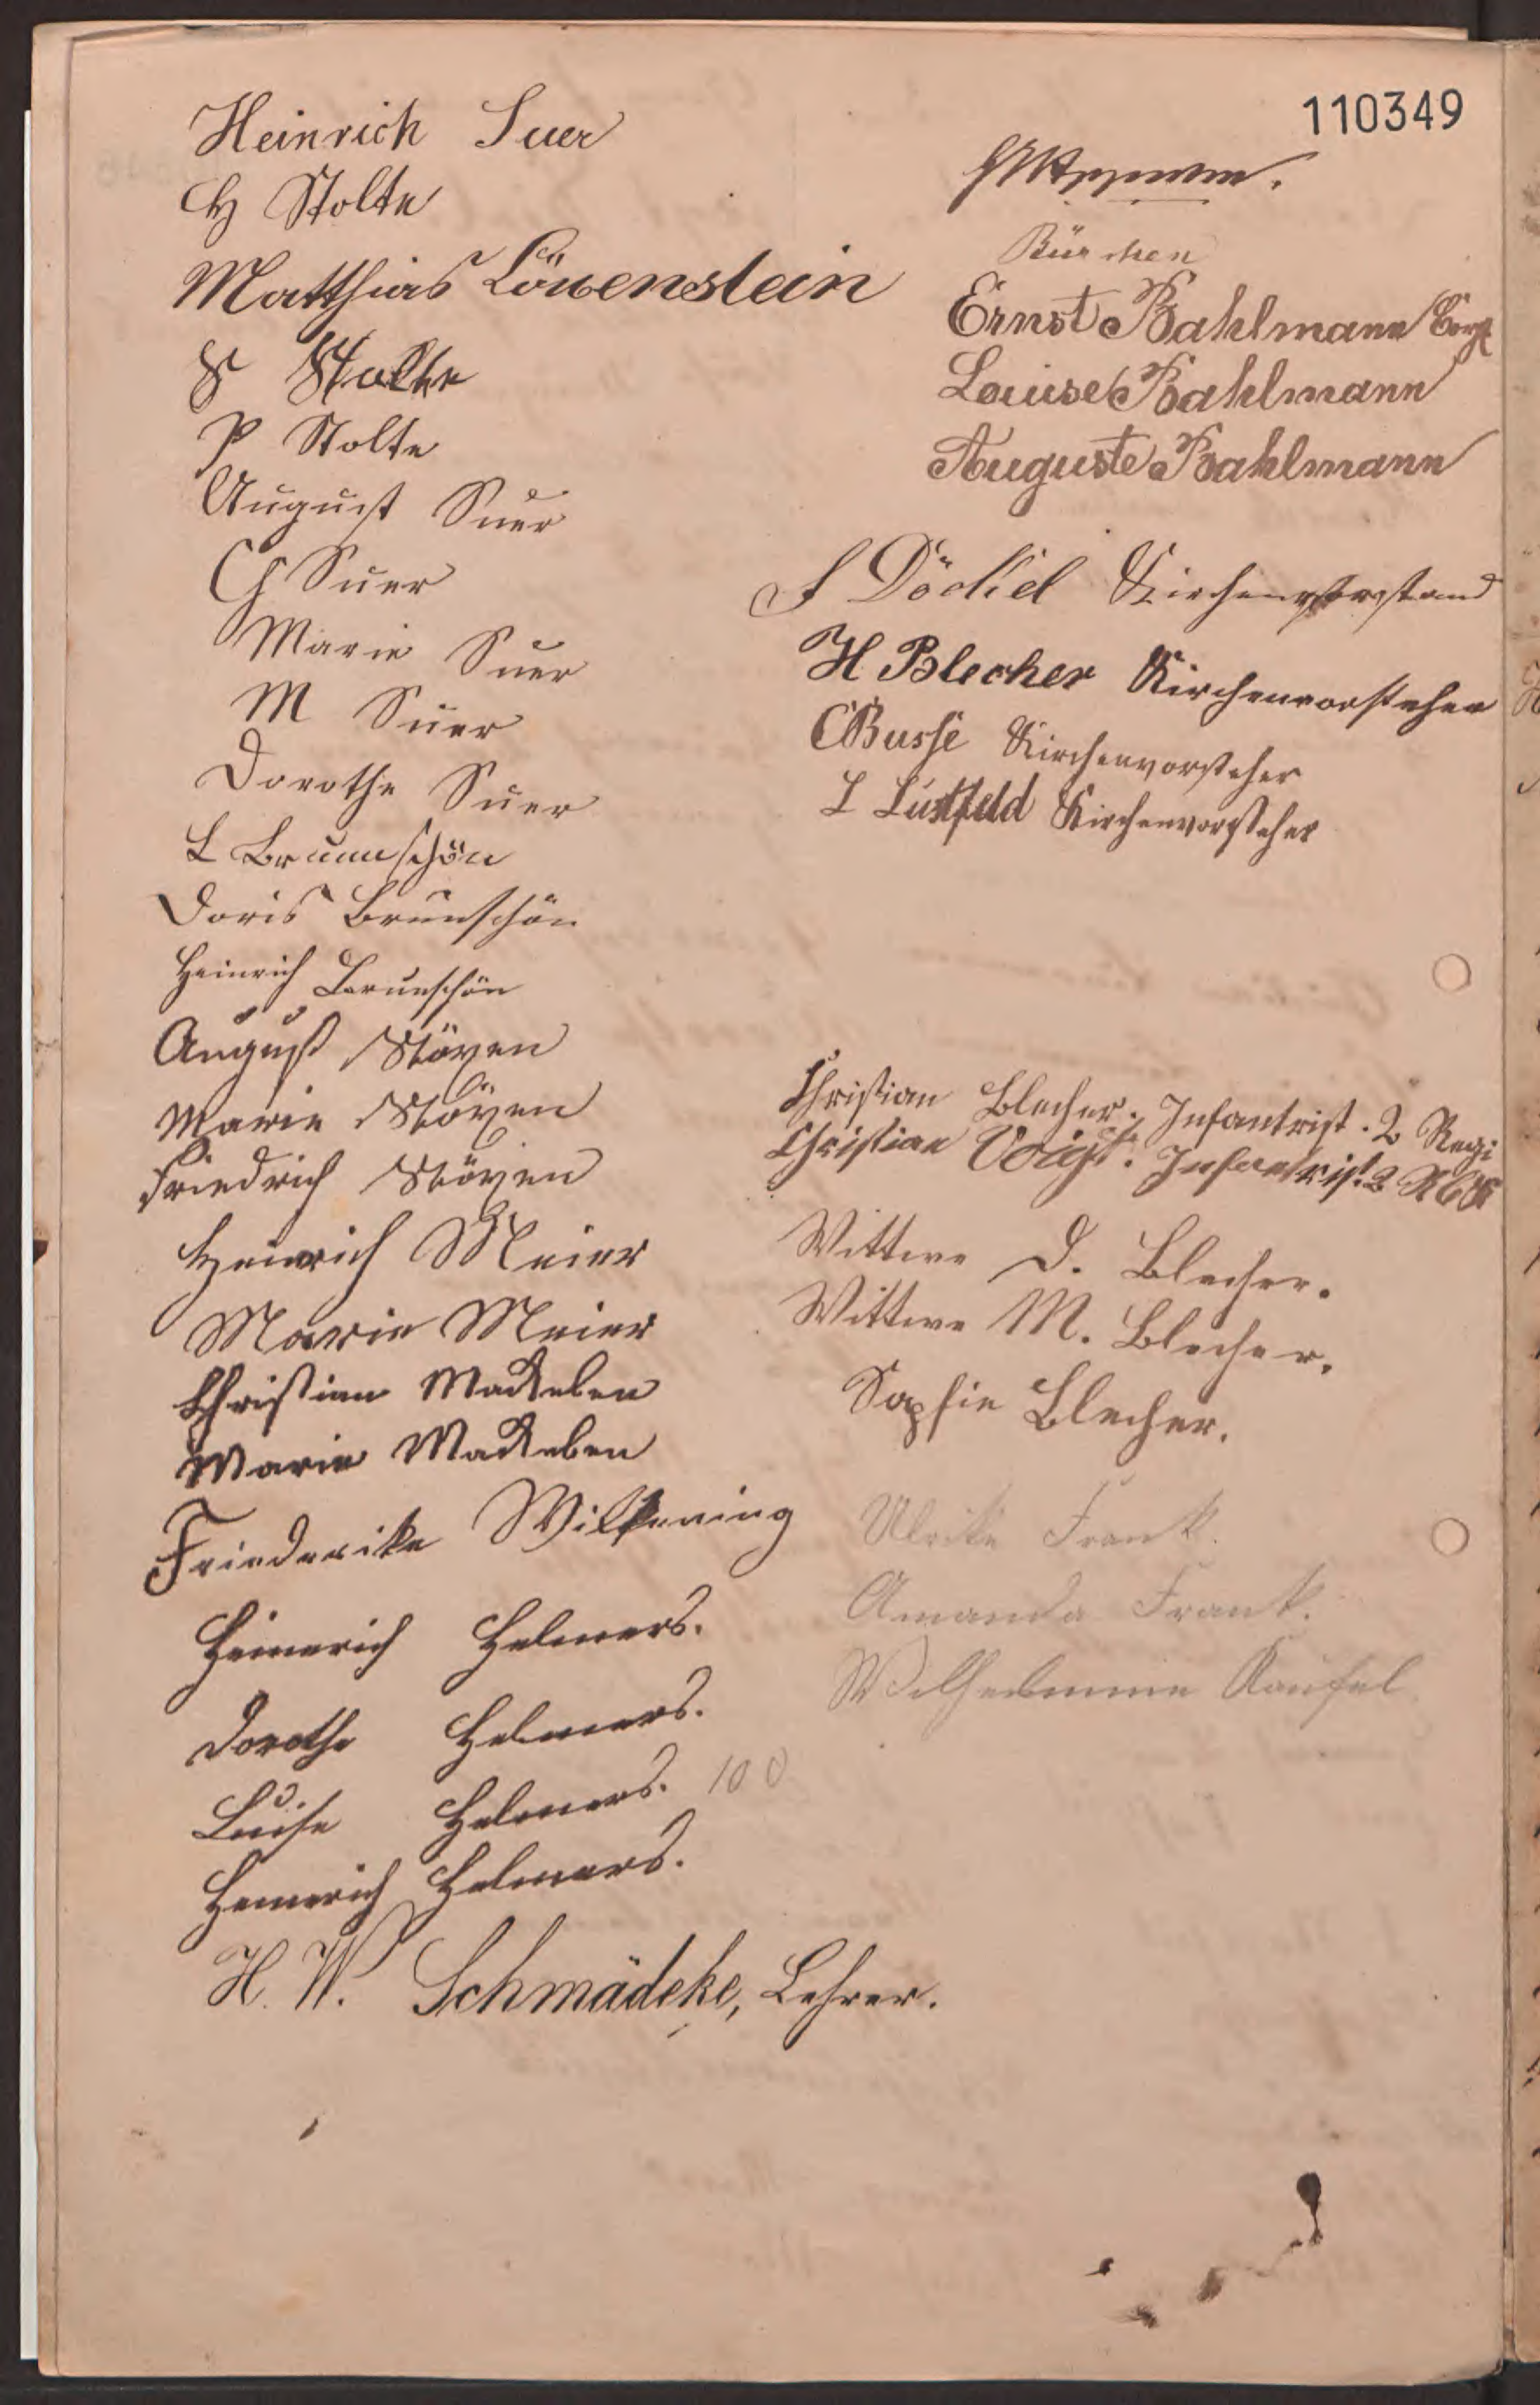 110349
Heinrich Suer
H Stolte
Matthias Löwenstein
S Stolte
P Stolte
August Suer
Ch Suer
Marie Suer
M Suer
Dorothe Suer
L Brunschön
Doris Brunschön
Heinrich Brunschön
August Stöxen
Marie Stöxen
Friedrich Stöxen
Heinrich Meier
Marie Meier
Christian Mackeben
Marie Mackeben
Friederike Wilkening
Heinerich Helmers.
Dorothe Helmers.
Luise Helmers. 100
Heinerich Helmers.
H. W. Schmädeke, Lehrer.
Ernst Bahlmann
Louise Bahlmann
Auguste Bahlmann
F Döckel Kirchenvorstand
H Blecher Kirchenvorsteher
C Busse Kirchenvorsteher
L Lustfeld Kirchenvorsteher
Christian Blecher. Infantrist. 2 Regi
Christian Voigt. Infantrist. 2
Wittwe D. Blecher.
Wittwe M. Blecher.
Sophie Blecher.
Ulrike Frank.
Amanda Frank.
Wilhelmine